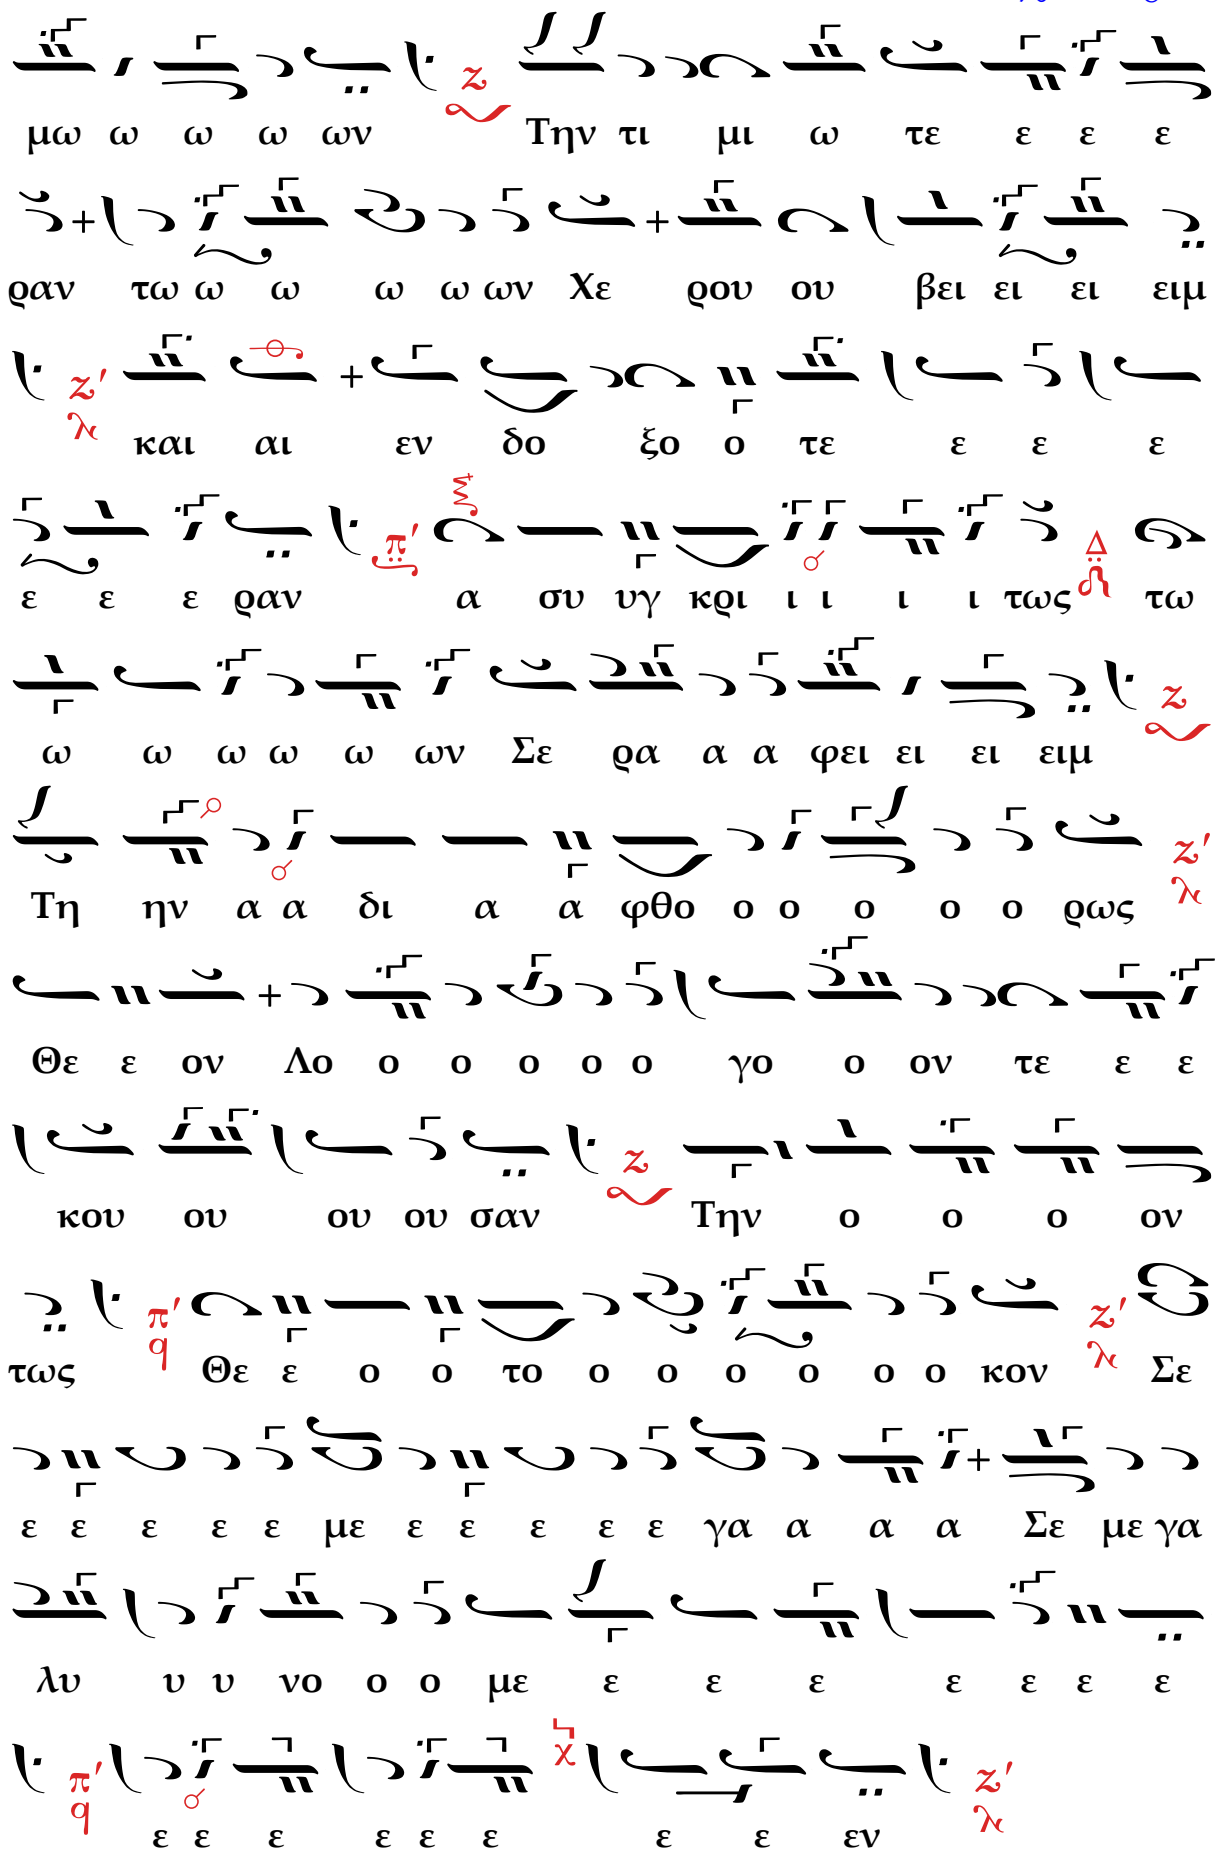 μω ω ω ω ων Την τι μι ω τε ε ε ε
ραν τω ω ω ω ω ων Χε ρου ου βει ει ει ειμ
και αι εν δο ξο ο τε ε ε ε
ε ε ε ραν α συ υγ κρι ι ι ι ι τως τω
ω ω ω ω ω ων Σε ρα α α φει ει ει ειμ
Τη ην α α δι α α φθο ο ο ο ο ο ρως
Θε ε ον Λο ο ο ο ο ο γο ο ον τε ε ε
κου ου ου ου σαν Την ο ο ο ον
τως Θε ε ο ο το ο ο ο ο ο ο κον Σε
ε ε ε ε ε με ε ε ε ε ε γα α α α Σε με γα
λυ υ υ νο ο ο με ε ε ε ε ε ε ε
ε ε ε ε ε ε ε ε εν